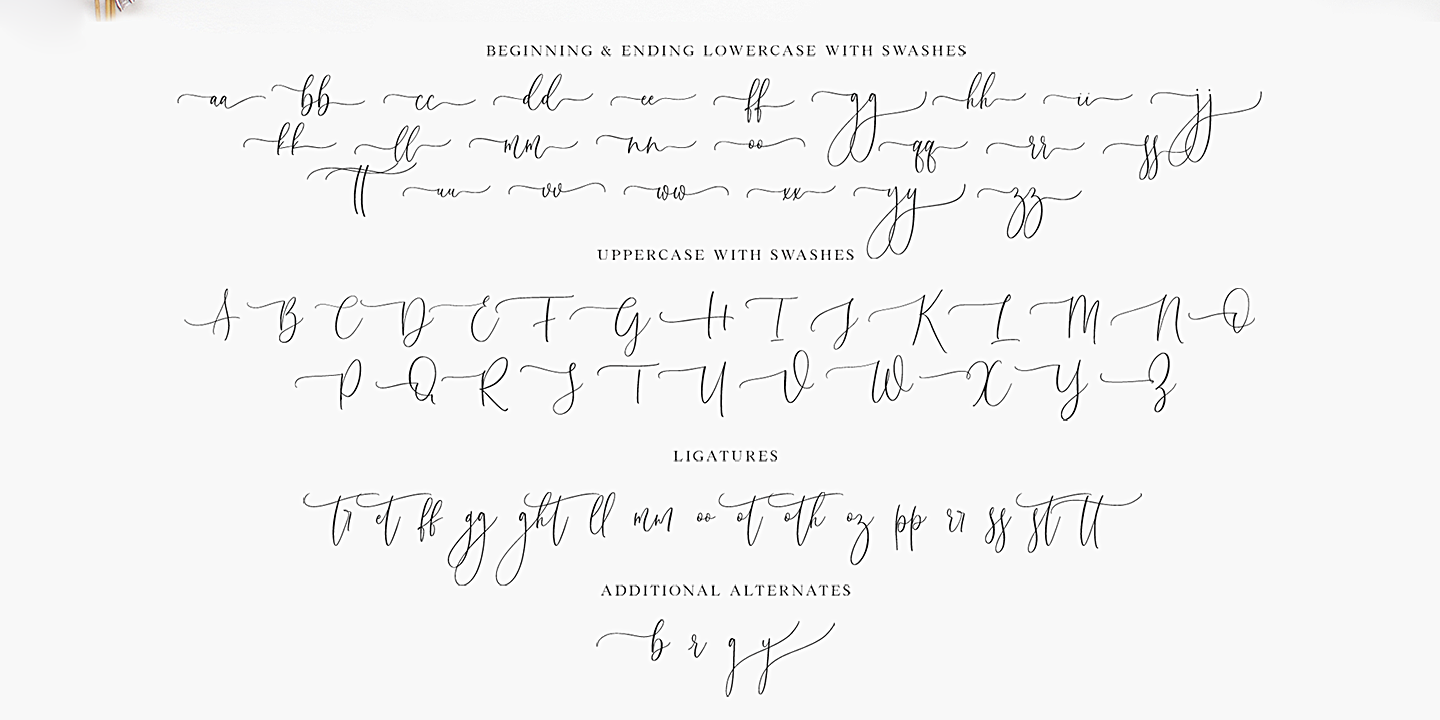 BEGINNING & ENDING LOWERCASE WITH SWASHES
aa bb cc dd ee ff gg hh ii jj
kk ll mm nn oo qq rr ss
tt uu vv ww xx yy zz
UPPERCASE WITH SWASHES
A B C D E F G H I J K L M N O
P Q R S T U V W X Y Z
LIGATURES
tr et ff gg ght ll mm oo ot oth oz pp rr ss st tt
ADDITIONAL ALTERNATES
b r g y